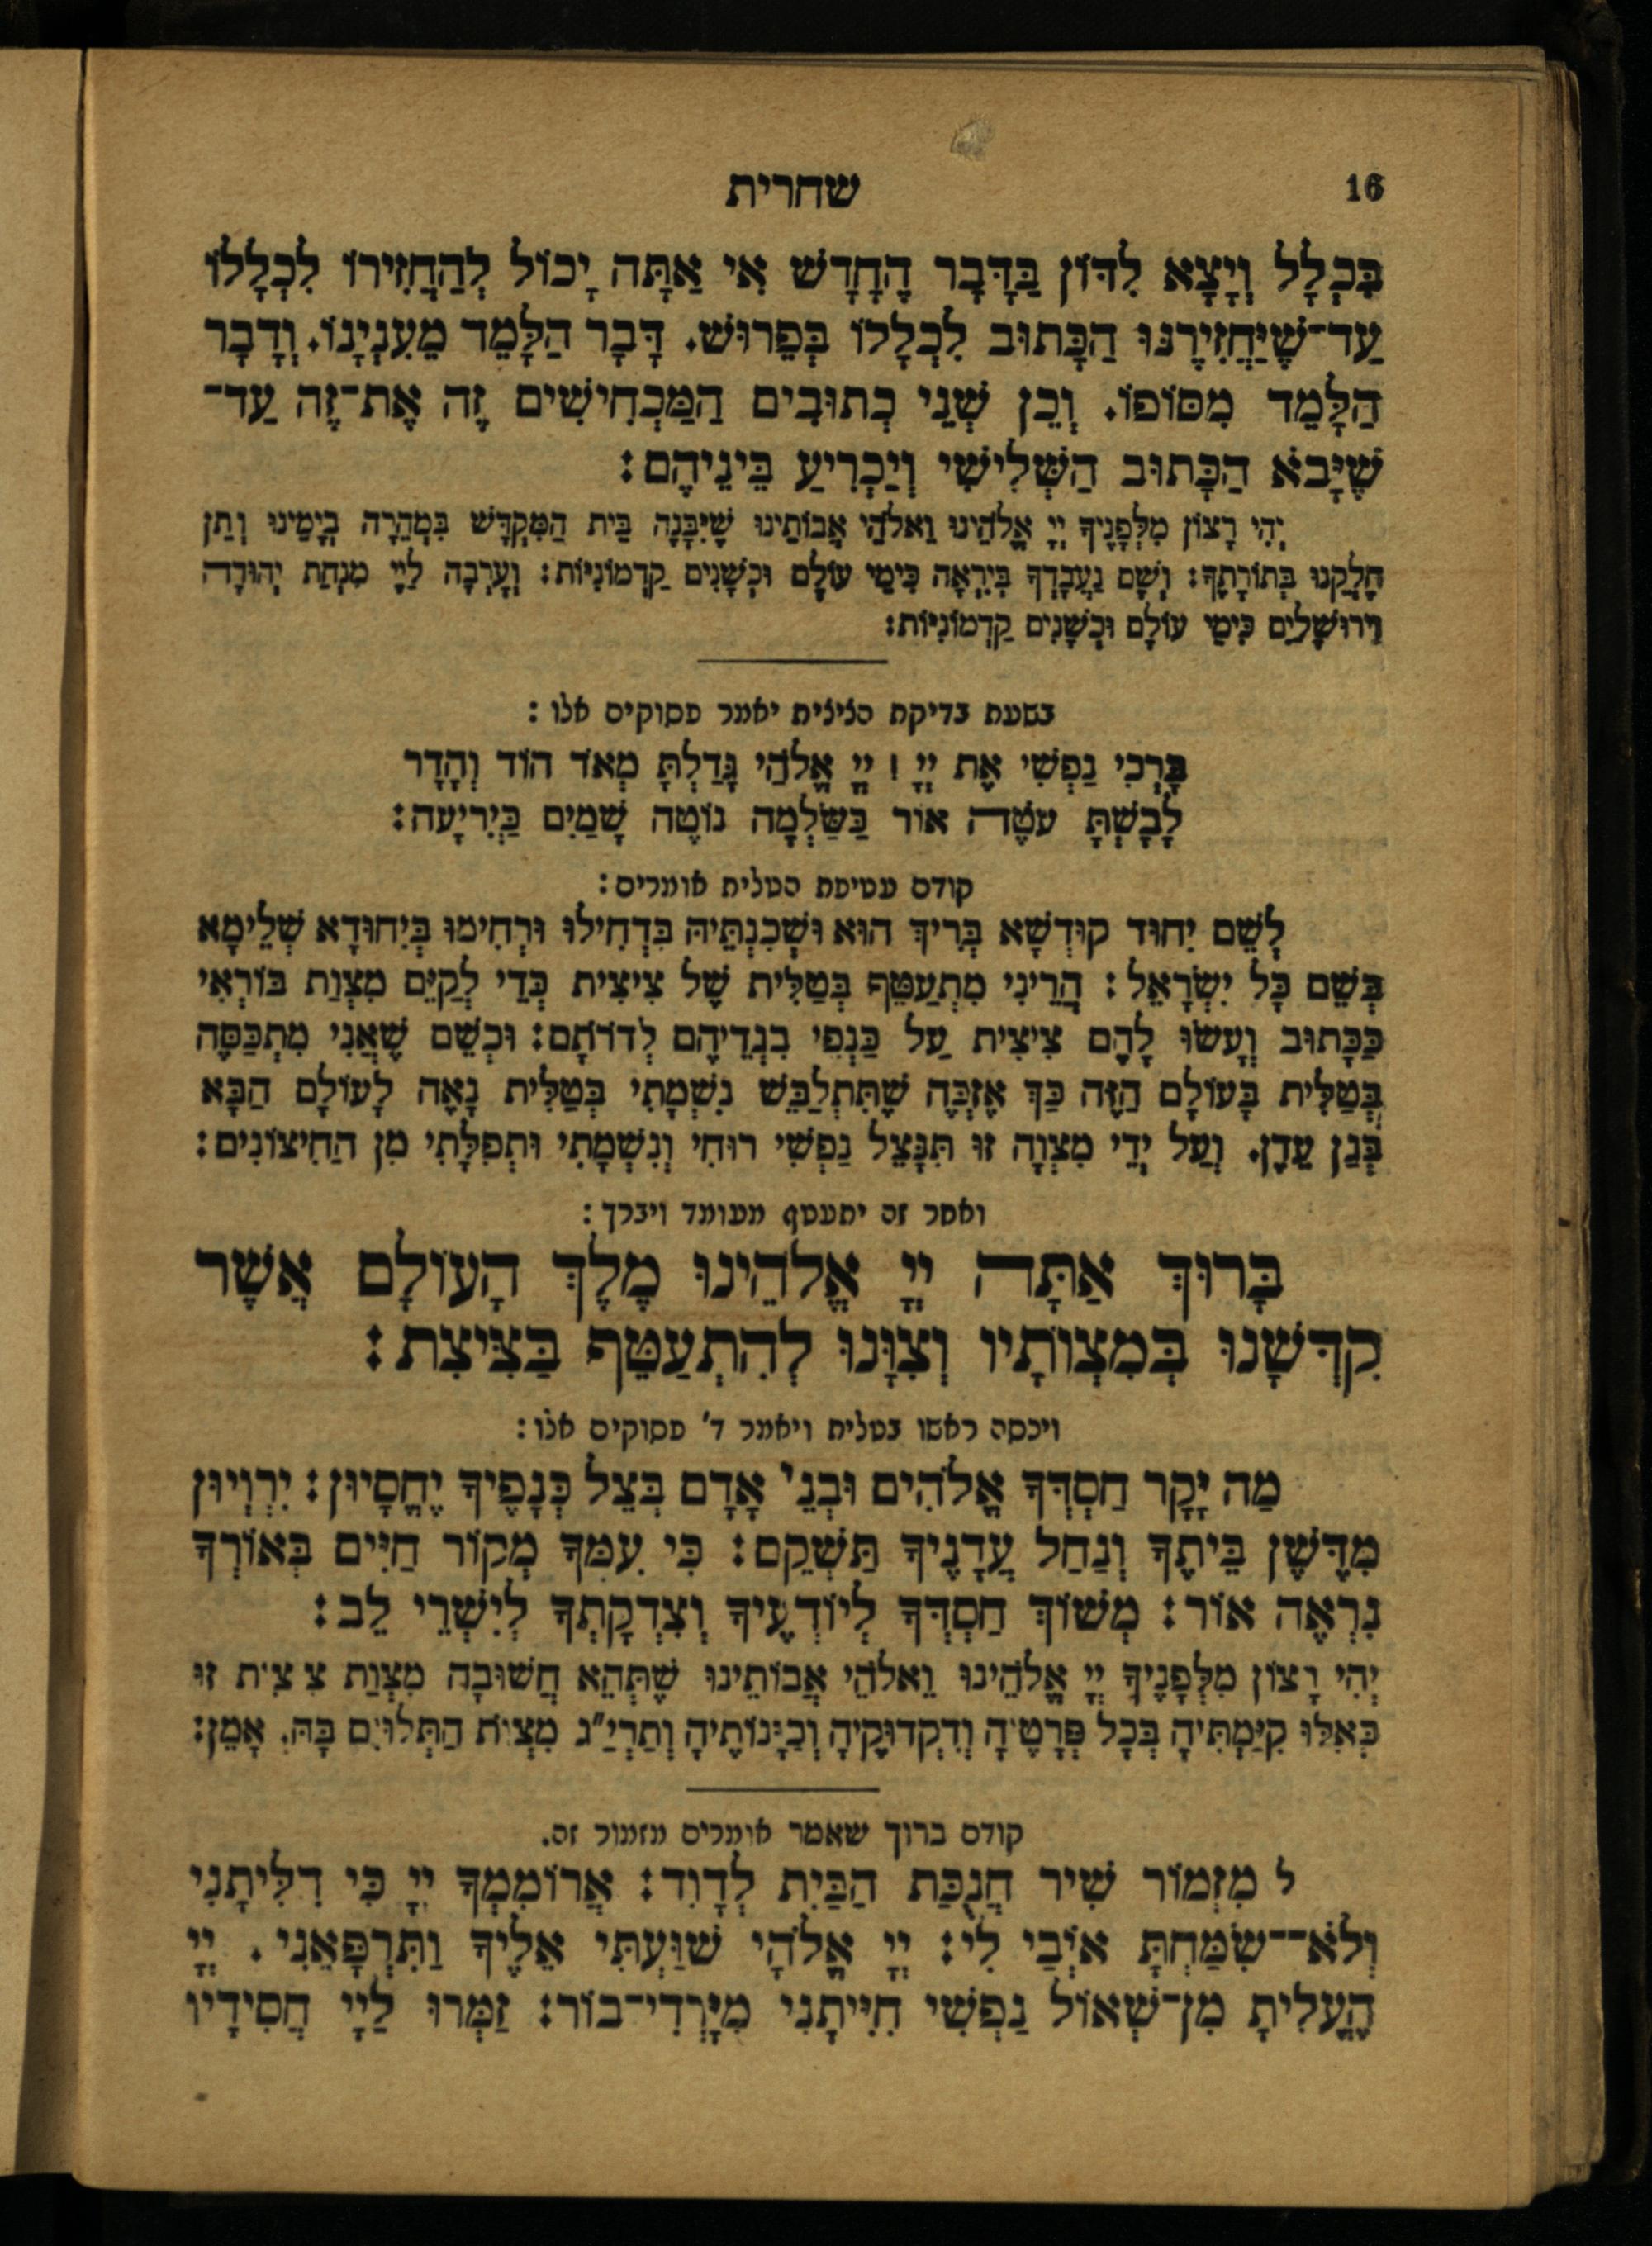 שחרית 16
בִּכְלָל וְיָצָא לִדּוֹן בַּדָּבָר הֶחָדָשׁ אִי אַתָּה יָכוֹל לְהַחֲזִירוֹ לִכְלָלוֹ
עַד־שֶׁיַּחֲזִירֶנּוּ הַכָּתוּב לִכְלָלוֹ בְּפֵרוּשׁ. דָּבָר הַלָּמֵד מֵעִנְיָנוֹ. וְדָבָר
הַלָּמֵד מִסּוֹפוֹ. וְכֵן שְׁנֵי כְתוּבִים הַמַּכְחִישִׁים זֶה אֶת־זֶה עַד־
שֶׁיָּבֹא הַכָּתוּב הַשְּׁלִישִׁי וְיַכְרִיעַ בֵּינֵיהֶם:
יְהִי רָצוֹן מִלְּפָנֶיךָ יְיָ אֱלֹהֵינוּ וֵאלֹהֵי אֲבוֹתֵינוּ שֶׁיִּבָּנֶה בֵּית הַמִּקְדָּשׁ בִּמְהֵרָה בְיָמֵינוּ וְתֵן
חֶלְקֵנוּ בְּתוֹרָתֶךָ: וְשָׁם נַעֲבָדְךָ בְּיִרְאָה כִּימֵי עוֹלָם וּכְשָׁנִים קַדְמוֹנִיּוֹת: וְעָרְבָה לַיְיָ מִנְחַת יְהוּדָה
וִירוּשָׁלַיִם כִּימֵי עוֹלָם וּכְשָׁנִים קַדְמוֹנִיּוֹת:
בשעת בדיקת הציצית יאמר פסוקים אלו:
בָּרְכִי נַפְשִׁי אֶת יְיָ ׀ יְיָ אֱלֹהַי גָּדַלְתָּ מְאֹד הוֹד וְהָדָר
לָבָשְׁתָּ עֹטֶה אוֹר כַּשַּׂלְמָה נוֹטֶה שָׁמַיִם כַּיְרִיעָה:
קודם עטיפת הטלית אומרים:
לְשֵׁם יִחוּד קוּדְשָׁא בְּרִיךְ הוּא וּשְׁכִנְתֵּיהּ בִּדְחִילוּ וּרְחִימוּ בְּיִחוּדָא שְׁלֵימָא
בְּשֵׁם כָּל יִשְׂרָאֵל: הֲרֵינִי מִתְעַטֵּף בְּטַלִּית שֶׁל צִיצִית כְּדֵי לְקַיֵּם מִצְוַת בּוֹרְאִי
כַּכָּתוּב וְעָשׂוּ לָהֶם צִיצִית עַל כַּנְפֵי בִגְדֵיהֶם לְדֹרֹתָם: וּכְשֵׁם שֶׁאֲנִי מִתְכַּסֶּה
בְּטַלִּית בָּעוֹלָם הַזֶּה כַּךְ אֶזְכֶּה שֶׁתִּתְלַבֵּשׁ נִשְׁמָתִי בְּטַלִּית נָאֶה לָעוֹלָם הַבָּא
בְּגַן עֵדֶן. וְעַל יְדֵי מִצְוָה זוּ תִּנָּצֵל נַפְשִׁי רוּחִי וְנִשְׁמָתִי וּתְפִלָּתִי מִן הַחִיצוֹנִים:
ואחר זה יתעטף מעומד ויברך:
בָּרוּךְ אַתָּה יְיָ אֱלֹהֵינוּ מֶלֶךְ הָעוֹלָם אֲשֶׁר
קִדְּשָׁנוּ בְּמִצְוֹתָיו וְצִוָּנוּ לְהִתְעַטֵּף בַּצִּיצִת:
ויכסה ראשו בטלית ויאמר ד׳ פסוקים אלו:
מַה יָּקָר חַסְדְּךָ אֱלֹהִים וּבְנֵי אָדָם בְּצֵל כְּנָפֶיךָ יֶחֱסָיוּן: יִרְוְיוּן
מִדֶּשֶׁן בֵּיתֶךָ וְנַחַל עֲדָנֶיךָ תַשְׁקֵם: כִּי עִמְּךָ מְקוֹר חַיִּים בְּאוֹרְךָ
נִרְאֶה אוֹר: מְשׁוֹךְ חַסְדְּךָ לְיוֹדְעֶיךָ וְצִדְקָתְךָ לְיִשְׁרֵי לֵב:
יְהִי רָצוֹן מִלְּפָנֶיךָ יְיָ אֱלֹהֵינוּ וֵאלֹהֵי אֲבוֹתֵינוּ שֶׁתְּהֵא חֲשׁוּבָה מִצְוַת צִיצִית זוּ
כְּאִלּוּ קִיַּמְתִּיהָ בְּכָל פְּרָטֶיהָ וְדִקְדּוּקֶיהָ וְכַוָּנוֹתֶיהָ וְתַרְיַ״ג מִצְוֹת הַתְּלוּיִם בָּהּ. אָמֵן:
קודם ברוך שאמר אומרים מזמור זה.
ל מִזְמוֹר שִׁיר חֲנֻכַּת הַבַּיִת לְדָוִד: אֲרוֹמִמְךָ יְיָ כִּי דִלִּיתָנִי
וְלֹא־שִׂמַּחְתָּ אוֹיְבַי לִי: יְיָ אֱלֹהָי שִׁוַּעְתִּי אֵלֶיךָ וַתִּרְפָּאֵנִי. יְיָ
הֶעֱלִיתָ מִן־שְׁאוֹל נַפְשִׁי חִיִּיתָנִי מִיָּרְדִי־בוֹר: זַמְּרוּ לַיְיָ חֲסִידָיו